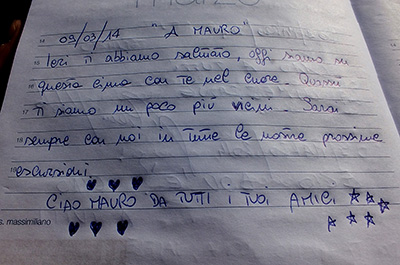 marzo
14 09/03/14 "A MAURO"
15 Ieri ti abbiamo salutato, oggi siamo su
16 questa cima con te nel cuore. Quassù
17 ti siamo un poco più vicini. Sarai
18 sempre con noi in tutte le nostre prossime
19 escursioni.
CIAO MAURO DA TUTTI I TUOI AMICI
s. massimiliano